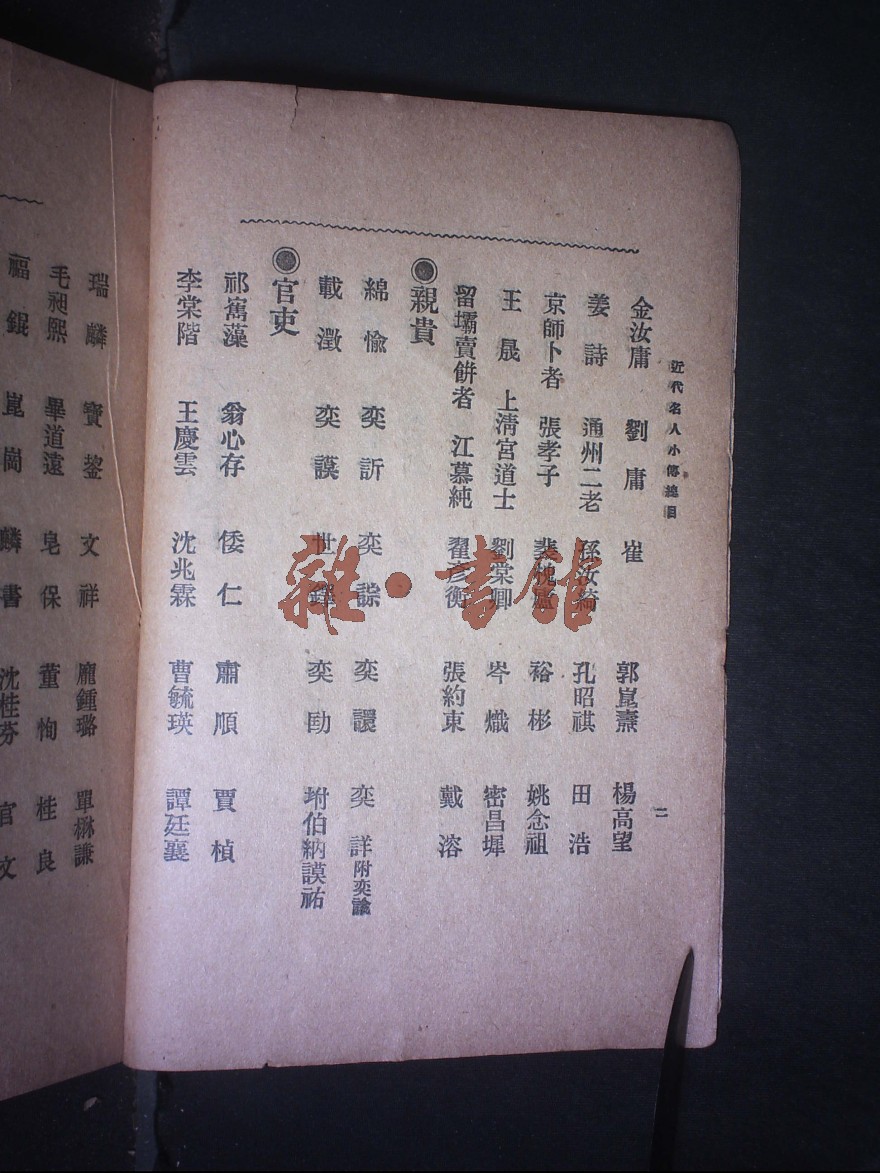 近代名人小傳總目
二
金汝庸 劉庸 崔 郭崑燾 楊高望
姜詩 通州二老 孫汝綺 孔昭祺 田浩
京師卜者 張孝子 裕彬 姚念祖
王晟 上清宮道士 劉棠卿 岑熾 密昌墀
留壩賣餅者 江慕純 翟彥衡 張約束 戴溶
◉親貴
綿愉 奕訢 奕誴 奕譞 奕詳附奕譣
載澂 奕謨 世鐸 奕劻 坿伯納謨祜
◉官吏
祁寯藻 翁心存 倭仁 肅順 賈楨
李棠階 王慶雲 沈兆霖 曹毓瑛 譚廷襄
瑞麟 寶鋆 文祥 龐鍾璐 單懋謙
毛昶熙 畢道遠 皂保 董恂 桂良
福錕 崑岡 麟書 沈桂芬 官文
雜·書館